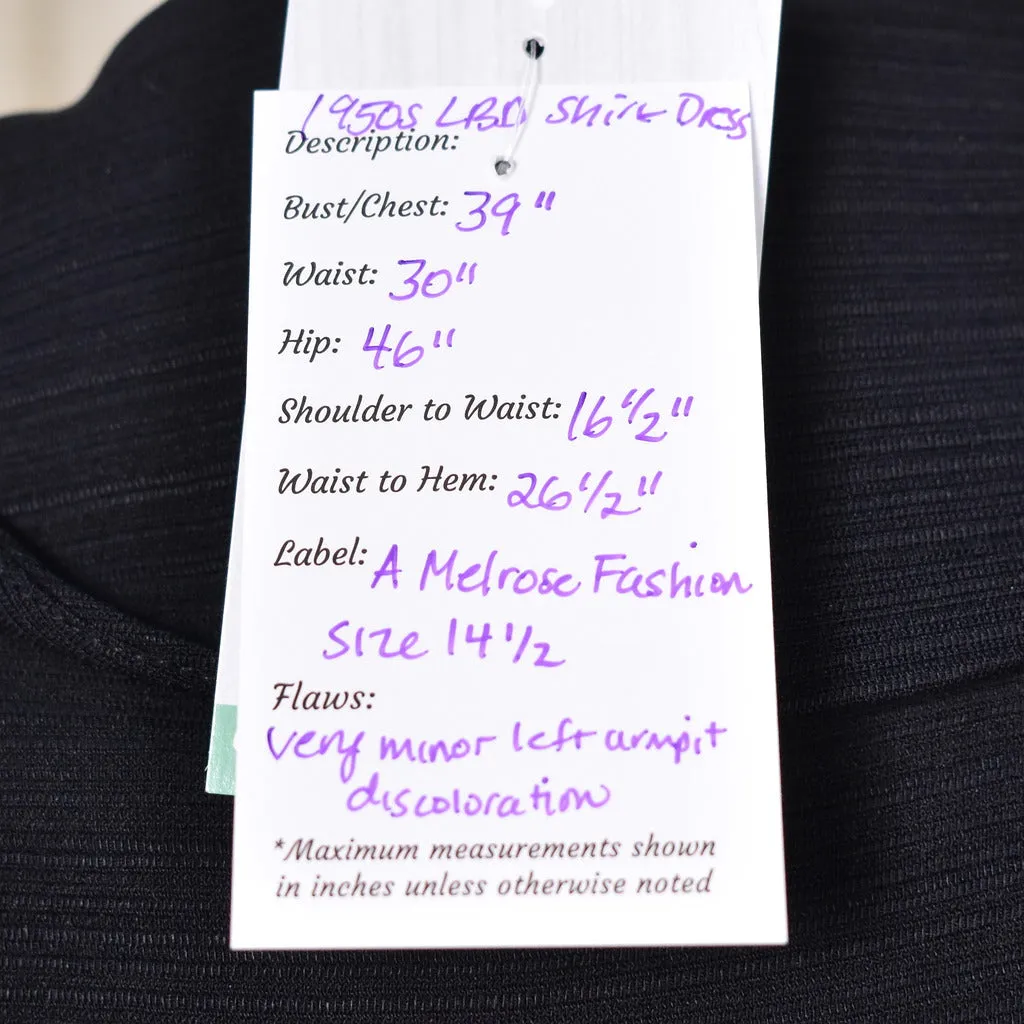 1950s LBD Shirt Dress
Description:
Bust/Chest: 39"
Waist: 30"
Hip: 46"
Shoulder to Waist: 16 1/2"
Waist to Hem: 26 1/2"
Label: A Melrose Fashion
Size 14 1/2
Flaws:
very minor left armpit
discoloration
*Maximum measurements shown
in inches unless otherwise noted